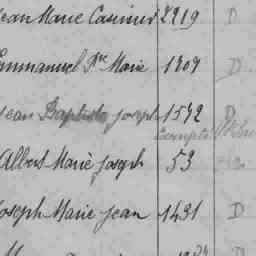 Jean Marie Casimir 2219 D
Emmanuel Fr Marie 1709 D
Jean Baptiste Joseph 1572 D
Exempté
Albert Marie Joseph 53
Joseph Marie Jean 1431 D